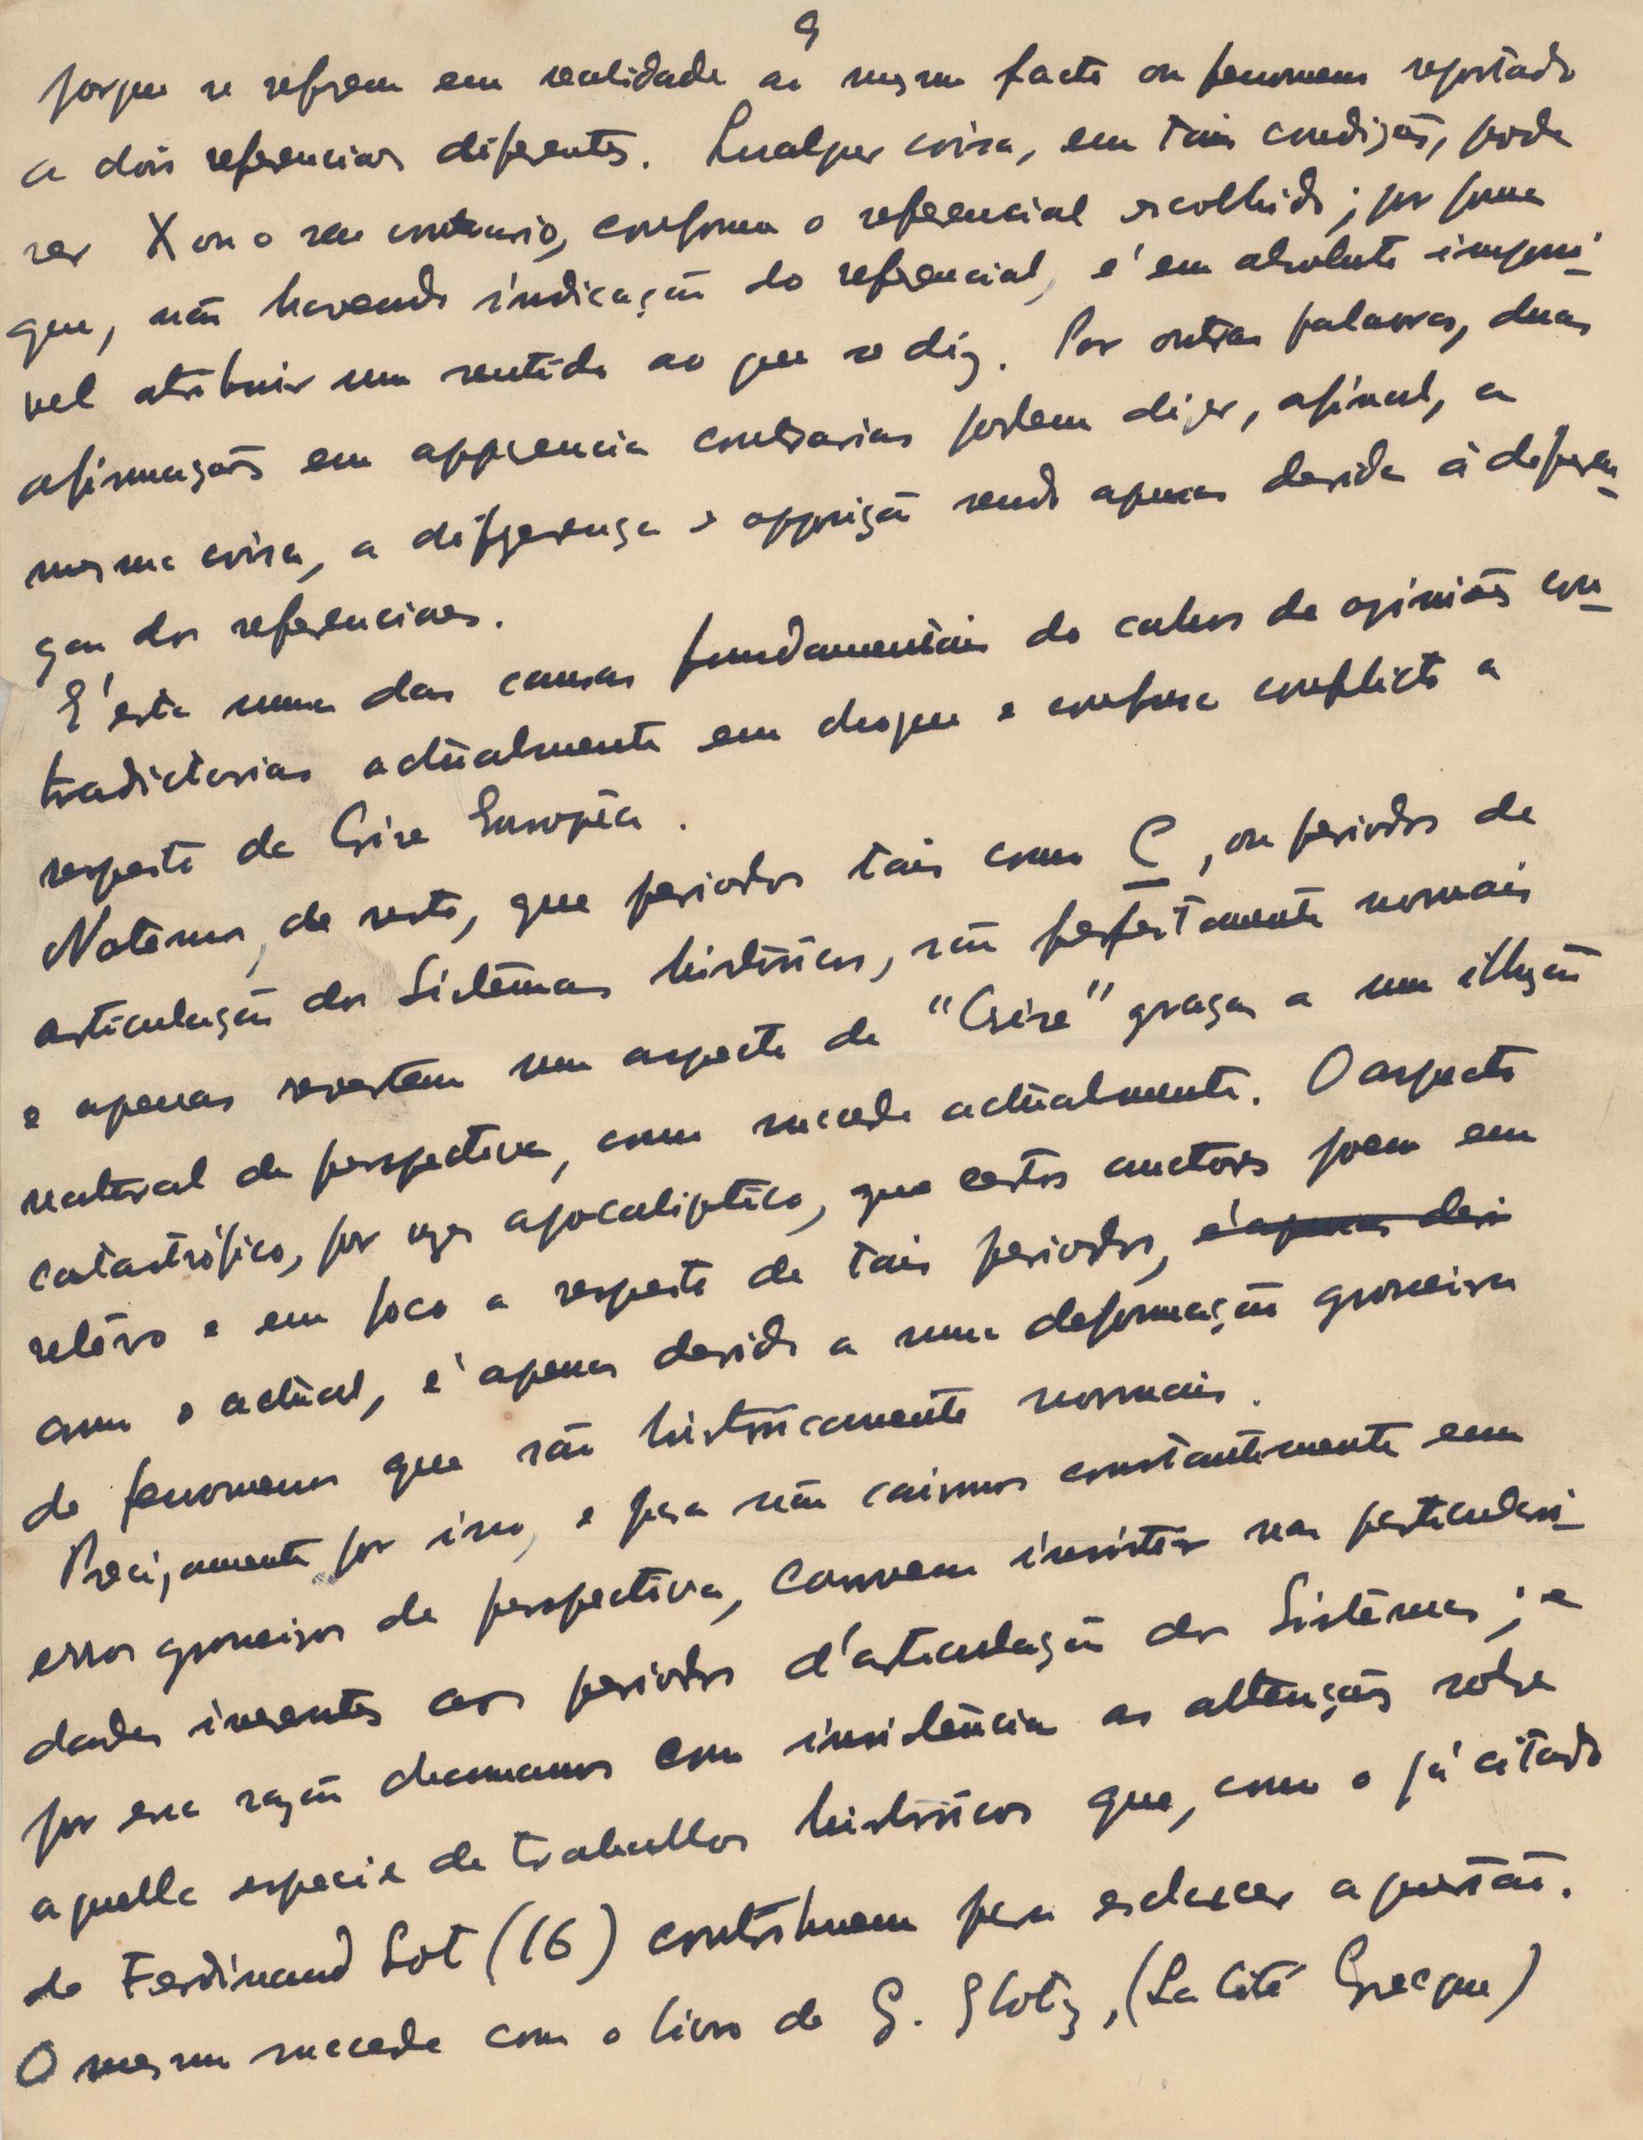 9
porque se referem em realidade ao mesmo facto ou fenomeno reportado
a dois referenciaes diferentes. Qualquer coisa, em tais condições, pode
ser X ou o seu contrario, conforme o referencial escolhido; por forma
que, não havendo indicação do referencial, é em absoluto impossi-
vel atribuir um sentido ao que se diz. Por outras palavras, duas
afirmações em apparencia contrarias podem dizer, afinal, a
mesma coisa, a differença e opposição sendo apenas devida à diferen-
ça dos referenciaes.
É esta uma das causas fundamentais do cahos de opiniões con-
tradictorias actualmente em choque e confuso conflicto a
respeito da Crise Européa.
Notemos, de resto, que periodos tais como C, ou periodos de
articulação dos Sistêmas históricos, são perfeitamente normais
e apenas revestem um aspecto de "Crise" graças a uma illusão
natural de perspectiva, como sucede actualmente. O aspecto
catastrófico, por vezes apocaliptico, que certos auctores poem em
relêvo e em foco a respeito de tais periodos, é apenas devi
como o actual, é apenas devido a uma deformação grosseira
de fenomenos que são històricamente normais.
Precisamente por isso, e para não cairmos constantemente em
erros grosseiros de perspectiva, convem insistir nas particulari-
dades inerentes aos periodos d'articulação dos Sistêmas; e
por essa razão chamamos com insistência as attenções sobre
aquella especie de trabalhos históricos que, como o já citado
de Ferdinand Lot (16) contribuem para esclarecer a questão.
O mesmo succede com o livro de G. Glotz, (La Cité Grecque)